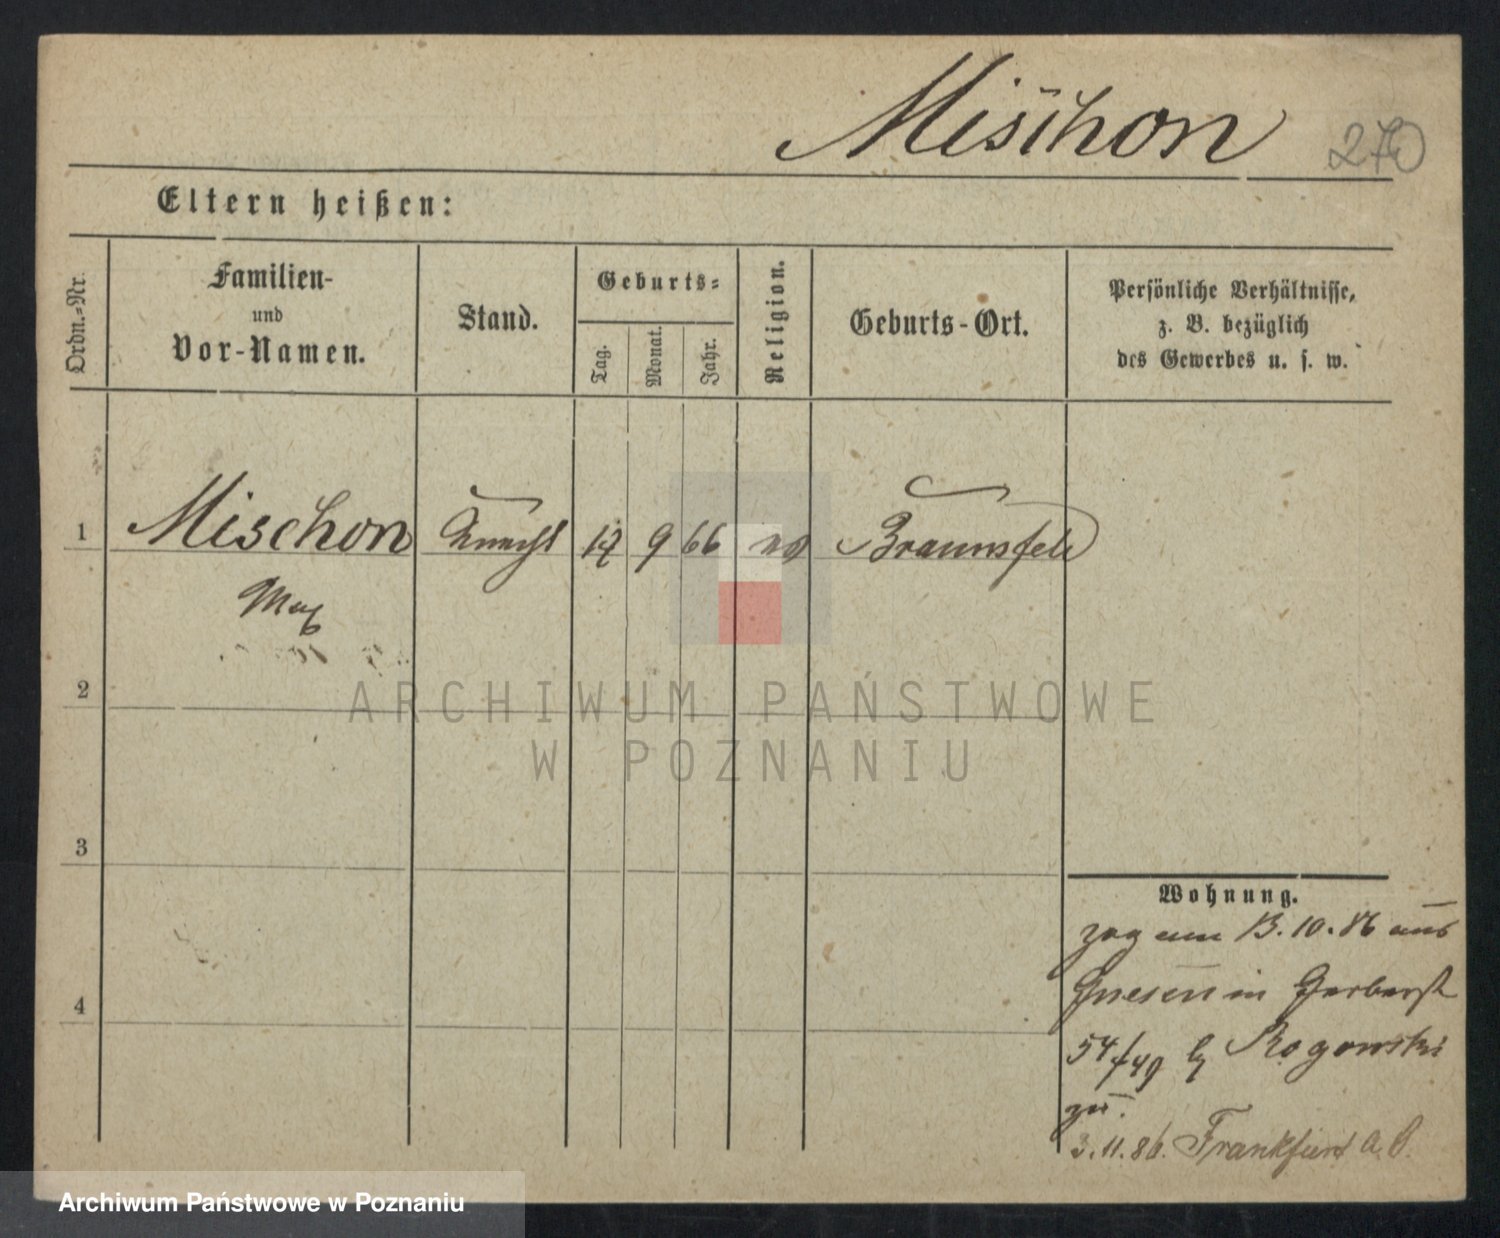 Mischon 270
Eltern heißen:
Ordn.-Nr.
Familien-
und
Vor-Namen.
Stand.
Geburts-
Tag.
Monat.
Jahr.
Religion.
Geburts-Ort.
Persönliche Verhältnisse,
z. B. bezüglich
des Gewerbes u. s. w.
1 Mischon Knecht 17 9 66 Braunsfeld
Max
2
3
4
Wohnung.
zog am 13.10.86 aus
Gnesen in Gerberst
54/49 b Rogowski
zu.
3.11.86. Frankfurt a. O.
ARCHIWUM PAŃSTWOWE
W POZNANIU
Archiwum Państwowe w Poznaniu